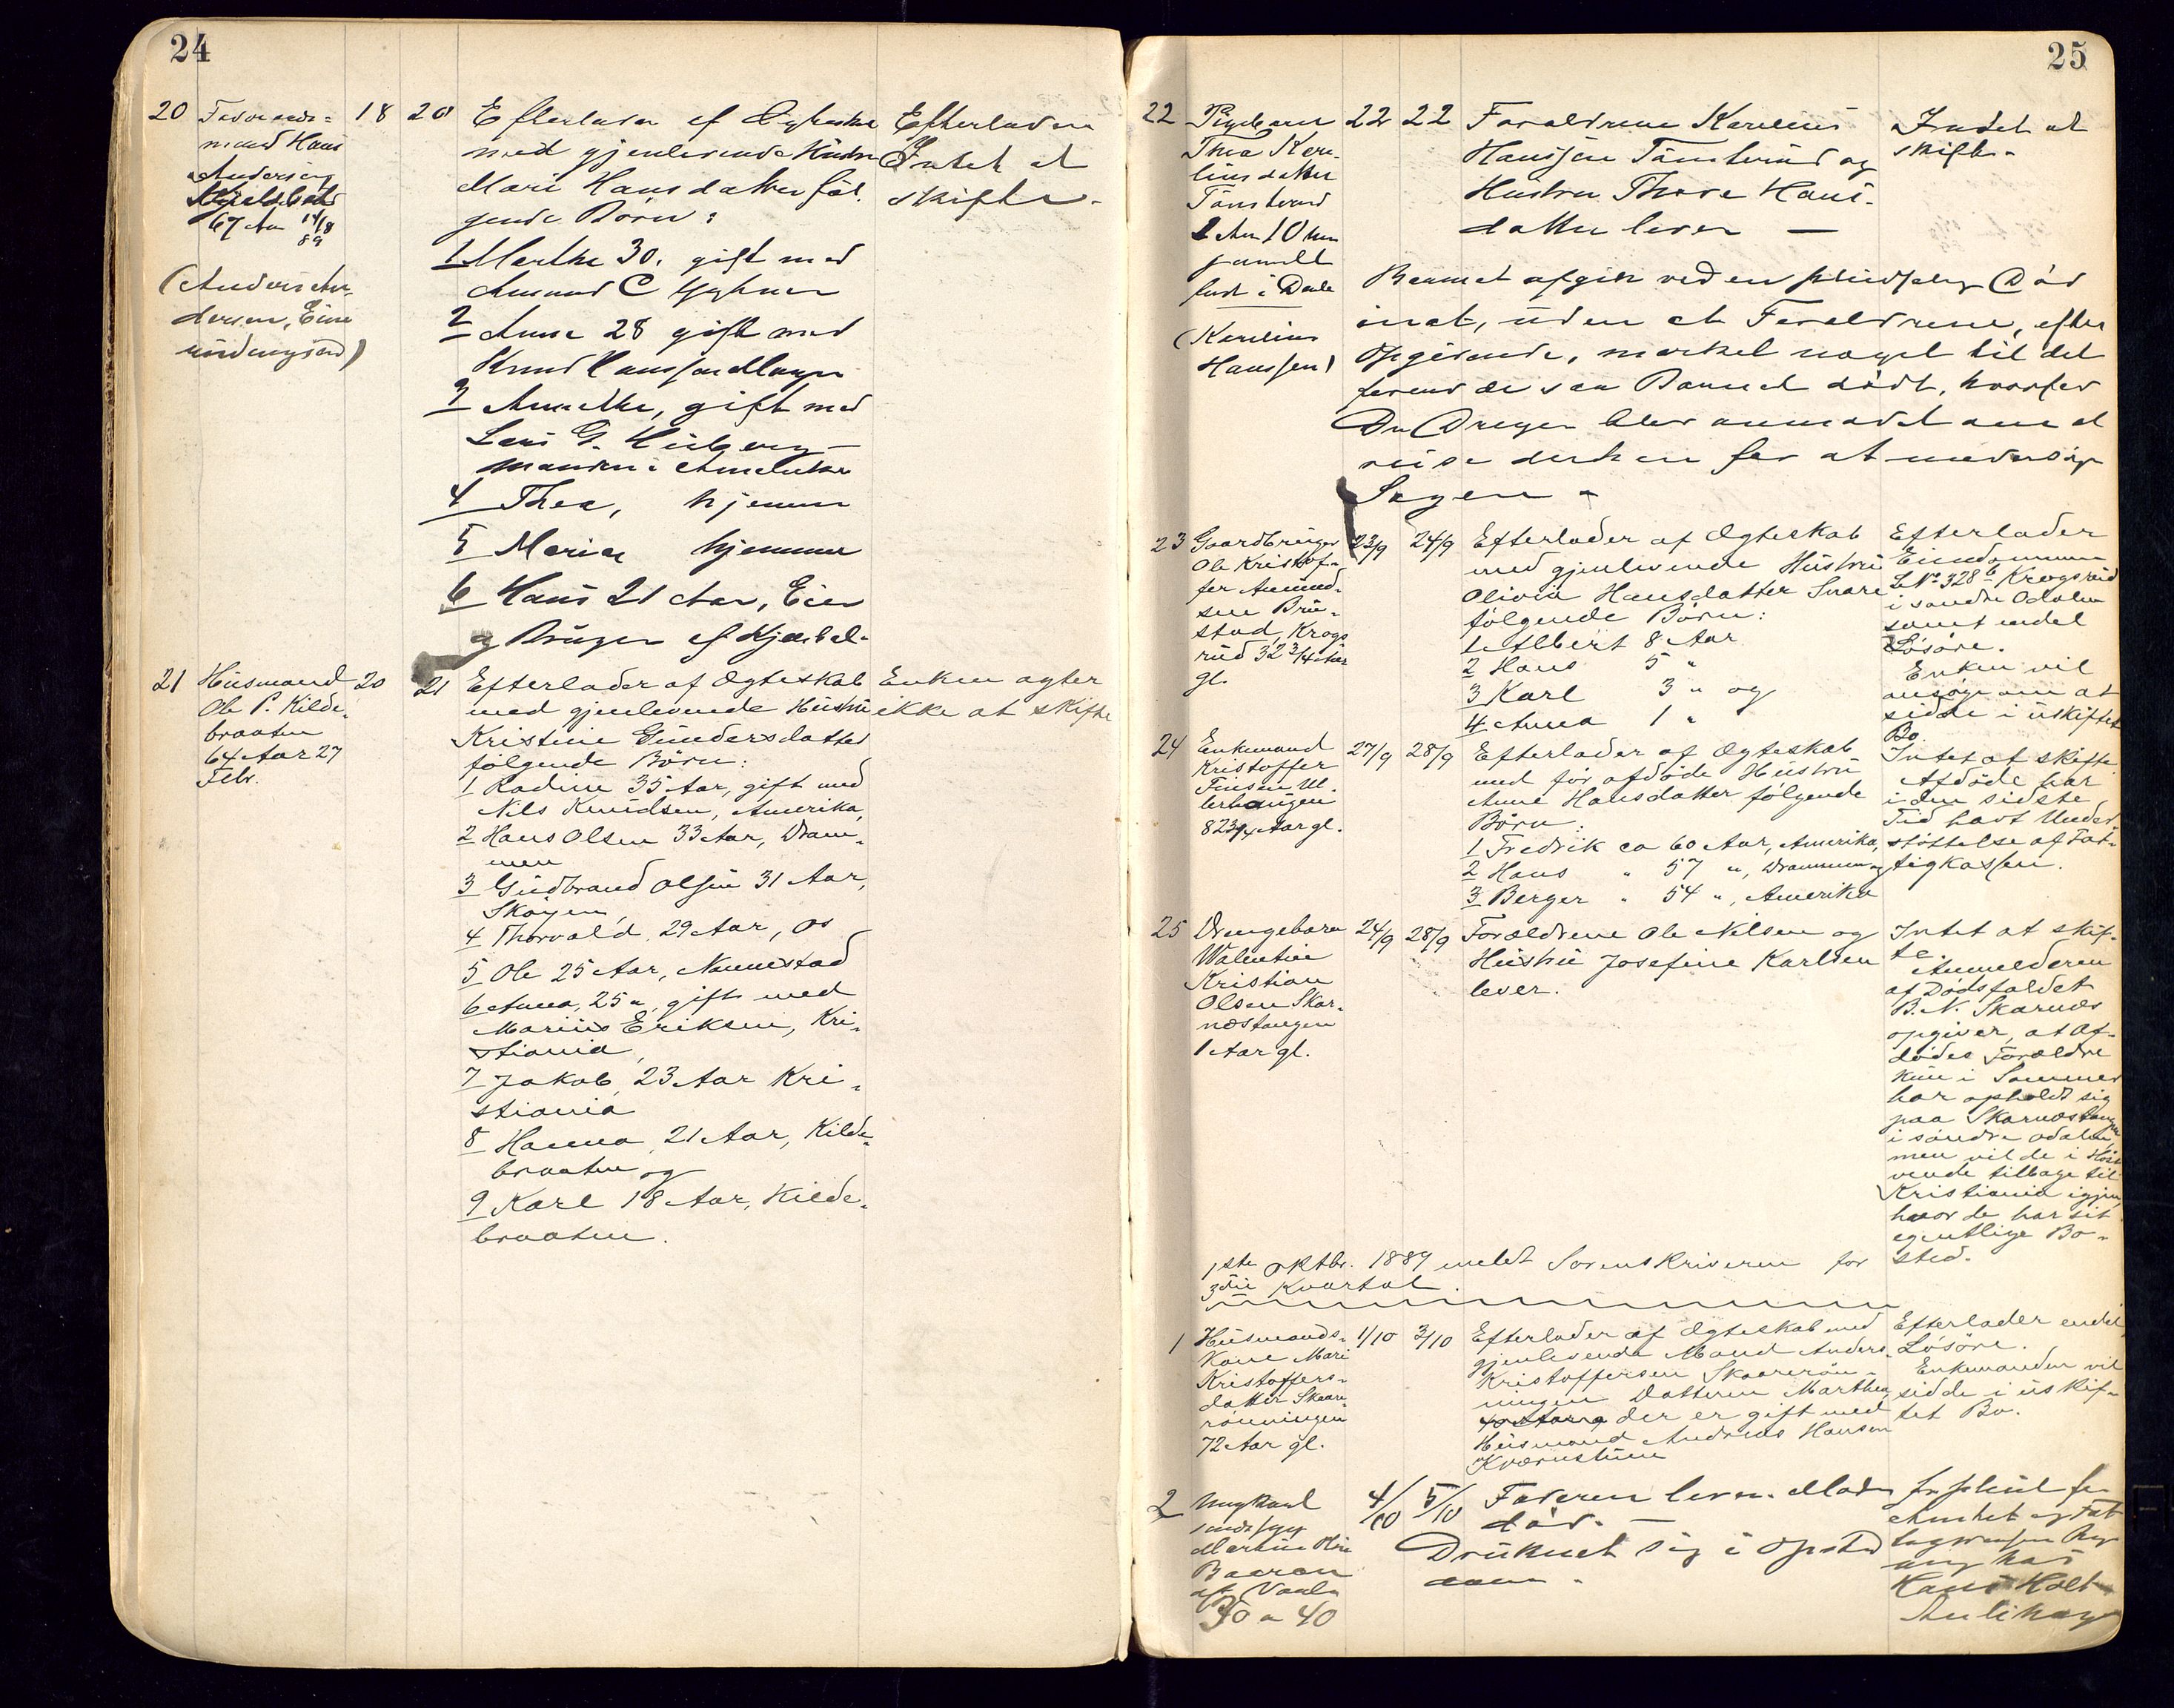 24
20
mand Hans
Andersen
67 Aar 14/8
89
(Anders An-
dersen, Eier
18
20
Efterlader af Egteskab
med gjenlevende Hustru
Mari Hansdatter føl-
gende Børn:
1 Marthe 30, gift med
Amund C
2 Anna 28 gift med
Knud Hanssen
3 Anethe, gift med
Lars G.
Manden i Amerika
4 Thea, hjemme
5 Maria hjemme
6 Hans 21 Aar, Eier
og Bruger af
Efterladen
Intet at
skifte.
21
Husmand
Ole P. Kilde-
braaten
64 Aar 27
Febr.
20
21
Efterlader af Egteskab
med gjenlevende Hustru
Kristine Gundersdatter
følgende Børn:
1 Radine 35 Aar, gift med
Nils Knudsen, Amerika,
2 Hans Olsen 33 Aar, Dram-
men
3 Gudbrand Olsen 31 Aar,
Skøyen,
4 Thorvald, 29 Aar, Os
5 Ole 25 Aar, Nannestad
6 Anna, 25 ", gift med
Marius Eriksen, Kri-
stiania,
7 Jakob, 23 Aar Kri-
stiania
8 Hanna, 21 Aar, Kilde-
braaten og
9 Karl 18 Aar, Kilde-
braaten.
Enken agter
ikke at skifte
25
22
Pigebarn
Thea Kare-
liusdatter
2 Aar 10
født i
(Karelius
Hanssen)
22
22
Forældrene Karelius
Hanssen og
Hustru Thore Hans-
datter lever —
Barnet afgik ved en pludselig Død
inat, uden at Forældrene, efter
Opgivende, mærket noget til det
førend de saa Barnet dødt, hvorfor
Dr Dreyer blev anmodet om at
reise derhen for at undersøge
Sagen -
Intet at
skifte.
23
Gaardbruger
Ole Kristof-
fer Amund-
sen Bru-
stad, Krogs
rud 32 3/4 Aar
gl.
23/9
24/9
Efterlader af Egteskab
med gjenlevende Hustru
Olivia Hansdatter Snare
følgende Børn:
1 Albert 8 Aar
2 Hans 5 "
3 Karl 3 " og
4 Anna 1 "
Efterlader
Eiendommen
L No 328 b Krogsrud
i søndre Odalen
samt endel
Løsøre.
Enken vil
ansøge om at
sidde i uskiftet
Bo.
24
Enkemand
Kristoffer
Finsen Ul-
lerhaugen
82 3/4 Aar gl.
27/9
28/9
Efterlader af Egteskab
med før afdøde Hustru
Anne Hansdatter følgende
Børn:
1 Fredrik ca 60 Aar, Amerika,
2 Hans " 57 ", Drammen og
3 Berger " 54 ", Amerika
Intet at skifte
Afdøde har
i den sidste
Tid havt Under-
støttelse af Fat-
tigkassen.
25
Drengebarn
Walentin
Kristian
Olsen Skar-
næstangen
1 Aar gl.
24/9
28/9
Forældrene Ole Nilsen og
Hustru Josefine Karlsen
lever.
Intet at skif-
te.
Anmelderen
af Dødsfaldet
B. N. Skarnæs
opgiver, at Af-
dødes Forældre
kun i Sommer
har opholdt sig
paa Skarnæstangen
i søndre Odalen,
men vil de i Høst
vende tilbage til
Kristiania igjen,
hvor de har sit
egentlige Bo-
sted.
1ste Oktbr. 1889 meldt Sorenskriveren for
3die Kvartal.
1
Husmands-
Kone Mari
Kristoffers-
datter Skaar-
rønningen
72 Aar gl.
1/10
3/10
Efterlader af Egteskab med
gjenlevende Mand Anders
Kristoffersen Skaarrøn-
ningen Datteren Marthea,
der er gift med
Husmand Andreas Hansen
Kværnstuen
Efterlader endel
Løsøre.
Enkemanden vil
sidde i uskif-
tet Bo.
2
Martin
40
4/10
5/10
Faderen lever. Moder
død. —
Druknet sig i
aaen.
hos
Hans Holt